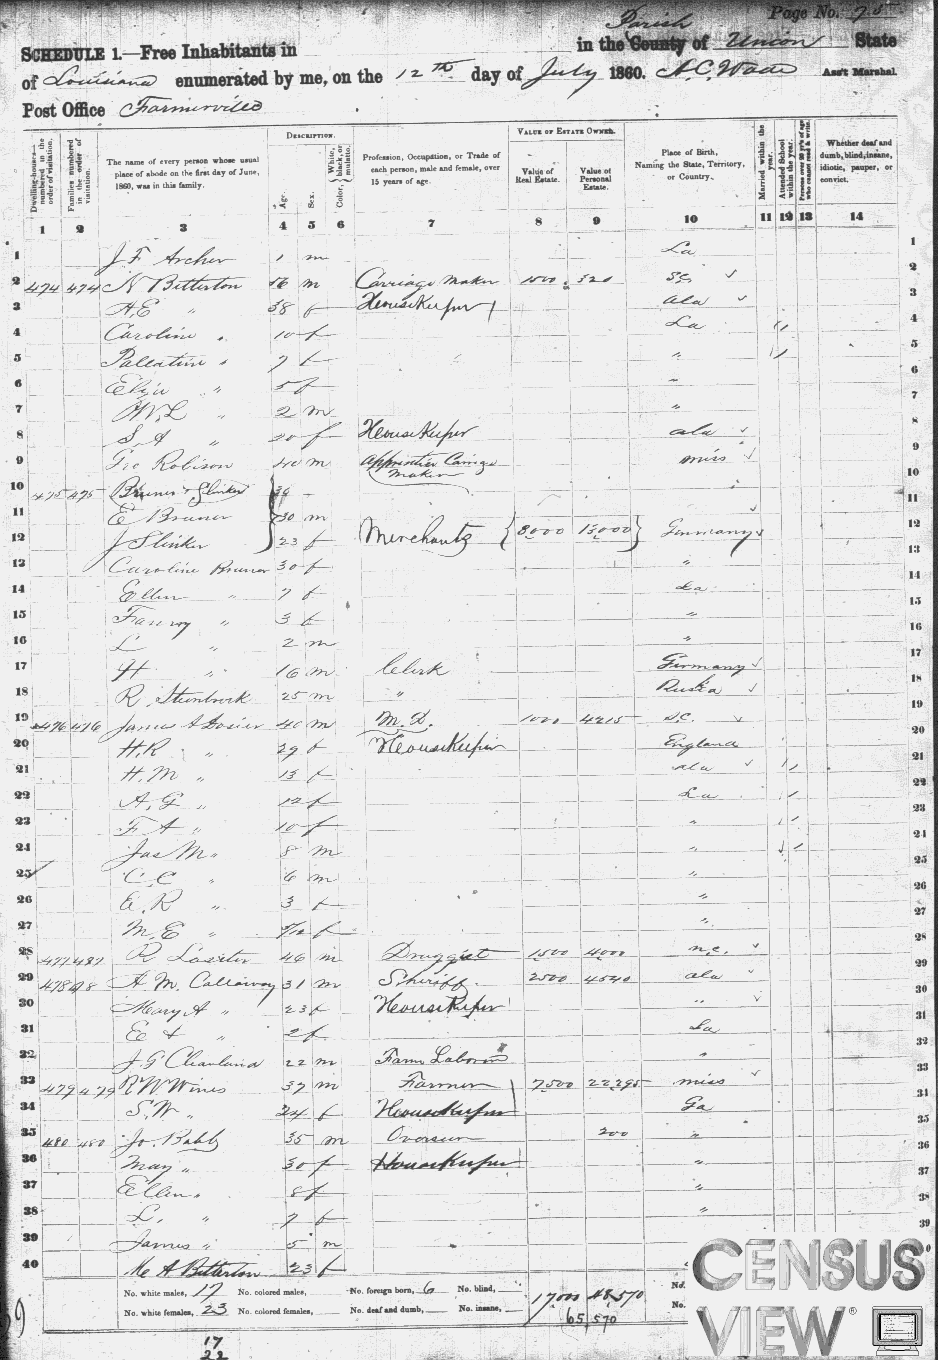 Page No. 75
SCHEDULE 1.—Free Inhabitants in in the County Parish of Union State
of Louisiana enumerated by me, on the 12th day of July 1860. A.C. Wade Ass't Marshal.
Post Office Farmerville
Dwelling-houses—numbered in the order of visitation.
Families numbered in the order of visitation.
The name of every person whose usual place of abode on the first day of June, 1860, was in this family.
DESCRIPTION.
Age.
Sex.
Color, { White, black, or mulatto.
Profession, Occupation, or Trade of each person, male and female, over 15 years of age.
VALUE OF ESTATE OWNED.
Value of Real Estate.
Value of Personal Estate.
Place of Birth, Naming the State, Territory, or Country.
Married within the year.
Attended School within the year.
Persons over 20 y'rs of age who cannot read & write.
Whether deaf and dumb, blind, insane, idiotic, pauper, or convict.
1 2 3 4 5 6 7 8 9 10 11 12 13 14
1 J F Archer 1 m La 1
2 474 474 N Bitterton m Carriage Maker 1500 320 2
3 A,E " 38 f HouseKeeper Ala 3
4 Caroline " 10 f La 4
5 Pallatine " 7 f " 5
6 Eliza " 5 f " 6
7 W,L " 2 m " 7
8 S. A " 20 f HouseKeeper Ala 8
9 Geo Robison 40 m Apprentice Carriage Maker Miss 9
10 475 475 Bruner & Slinker 10
11 E Bruner 30 m 11
12 J Slinker 23 f Merchants 8000 15000 Germany 12
13 Caroline Bruner 30 f " 13
14 Ellen " 7 f La 14
15 Fanny " 3 f " 15
16 L " 2 m " 16
17 H " 16 m Clerk Germany 17
18 R. 25 m " Rusia 18
19 476 476 James A 40 m M.D. 1000 4215 S.C. 19
20 H.R " 29 f HouseKeeper England 20
21 H.M " 13 f Ala 21
22 A,G " 12 f La 22
23 F A " 10 f " 23
24 Jas M " 8 m " 24
25 C.C " 6 m " 25
26 E.R " 3 f " 26
27 M.E " f " 27
28 477 487 R 46 m Druggist 1500 4000 N.C. 28
29 478 A. M. Callaway 31 m Sheriff 2500 4540 Ala 29
30 Mary A " 23 f HouseKeeper " 30
31 E " 2 f La 31
32 J.G Cleaveland 22 m Farm Laborer " 32
33 479 479 R W Wines 37 m Farmer 7500 22,295 Miss 33
34 S.W " 24 f HouseKeeper Ga 34
35 480 480 Jo. Babb 35 m Overseer 200 " 35
36 May " 30 f HouseKeeper " 36
37 Ellen " 8 f " 37
38 L. " 7 f " 38
39 James " 5 m 39
40 Mc A Bitterton 23 f
No. white males, 17 No. colored males, No. foreign born, 6 No. blind,
No. white females, 23 No. colored females, No. deaf and dumb, No. insane,
17,000 48,570
65,570
No.
No.
17
23
CENSUS
VIEW®